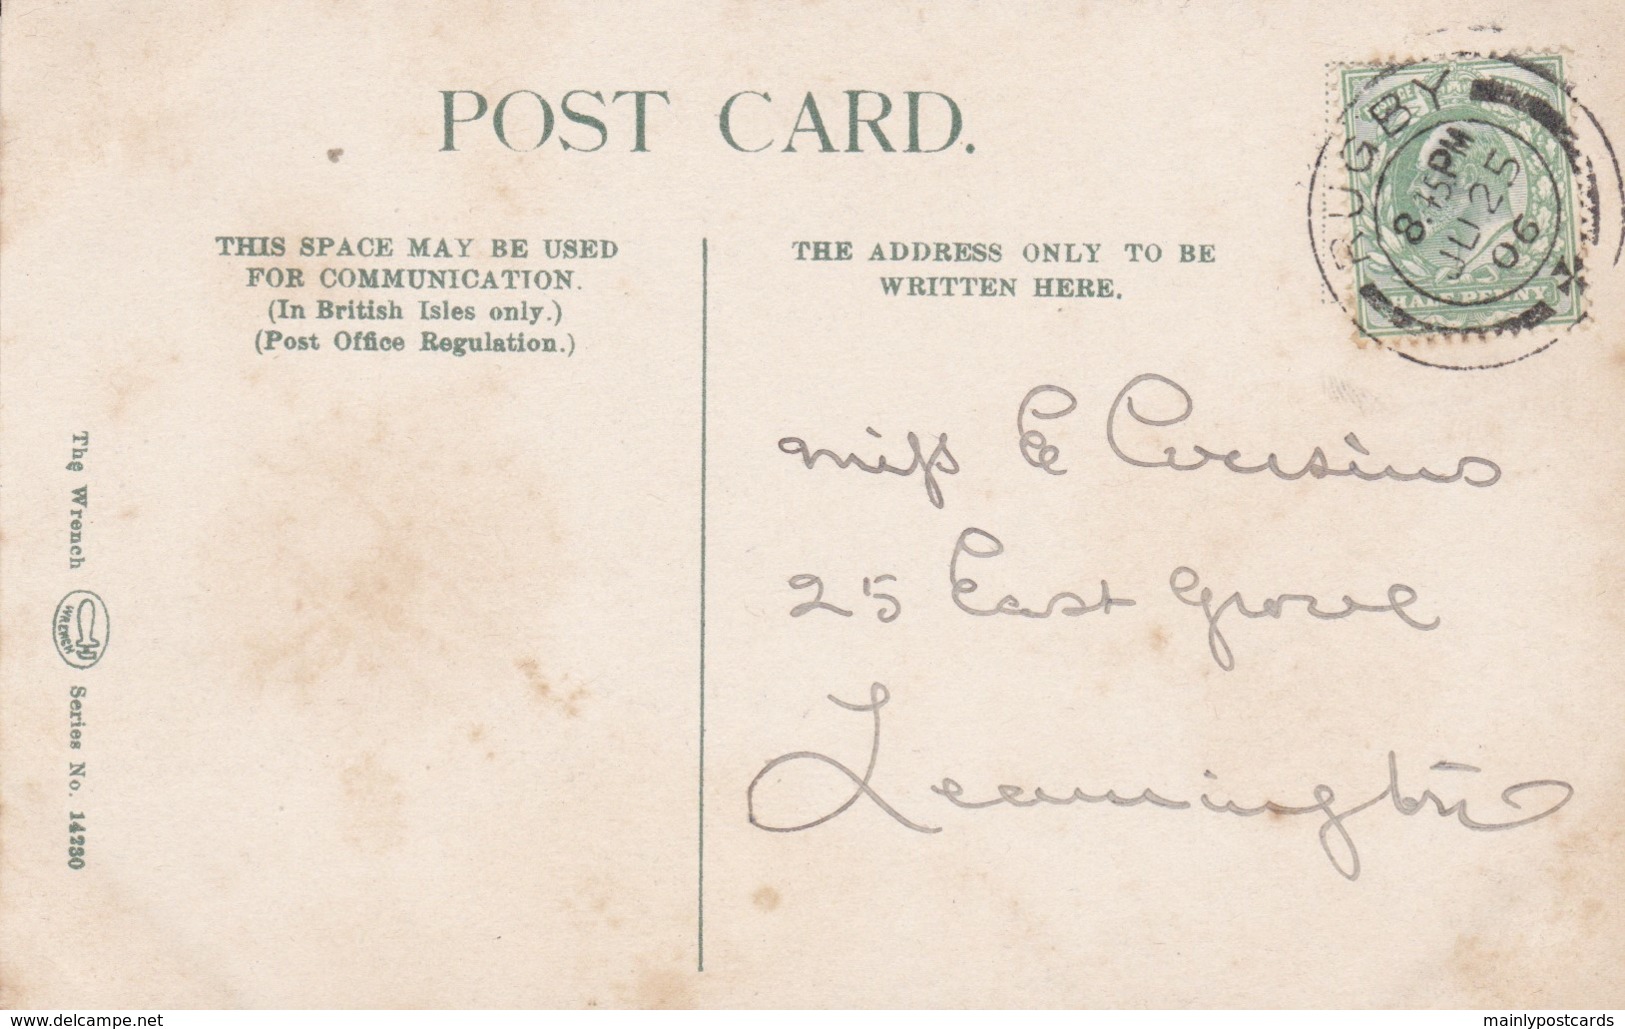 POST CARD.
THIS SPACE MAY BE USED
FOR COMMUNICATION.
(In British Isles only.)
(Post Office Regulation.)
THE ADDRESS ONLY TO BE
WRITTEN HERE.
RUGBY
8.45PM
JU 25
06
HALFPENNY
Miss E Cousins
25 East Grove
Leamington
The Wrench
WRENCH
Series No. 14230
www.delcampe.net
mainlypostcards